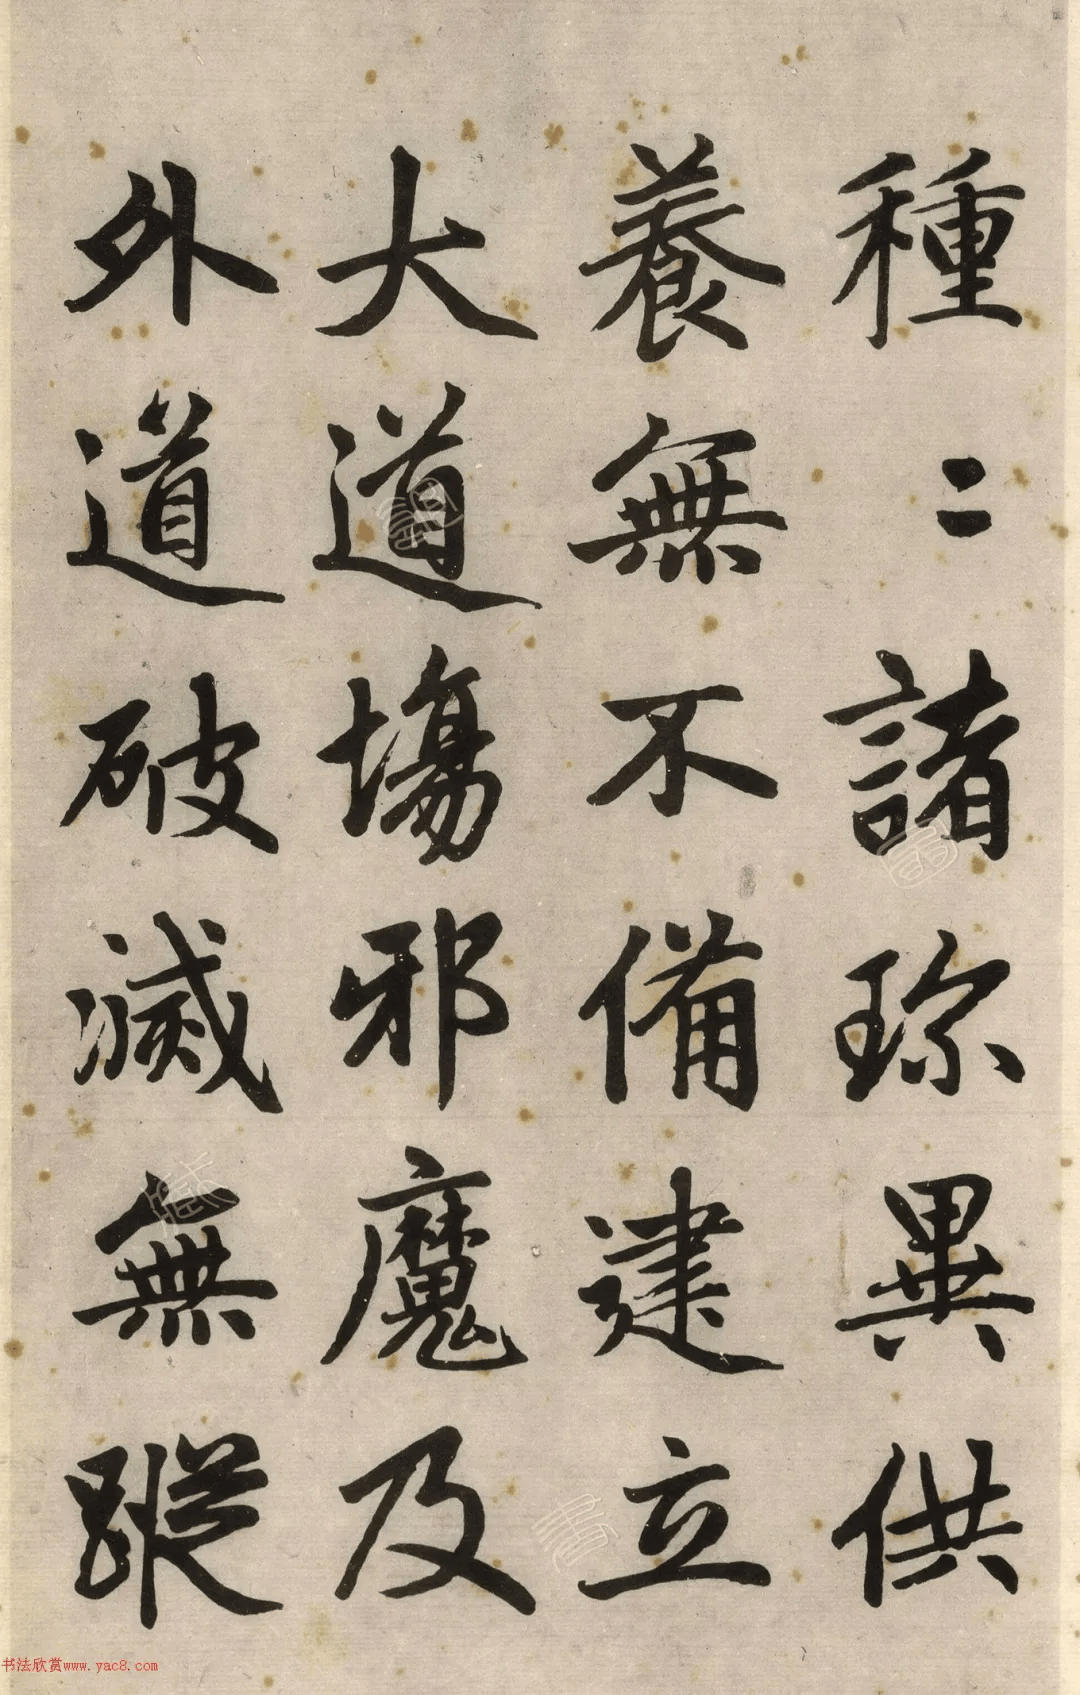 種〻諸珎異供
養無不備建立
大道場邪魔及
外道破滅無蹤
书法欣赏www.yac8.com